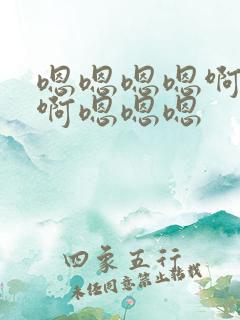 嗯嗯嗯嗯啊
啊嗯嗯嗯
四象五行
未经同意禁止转载